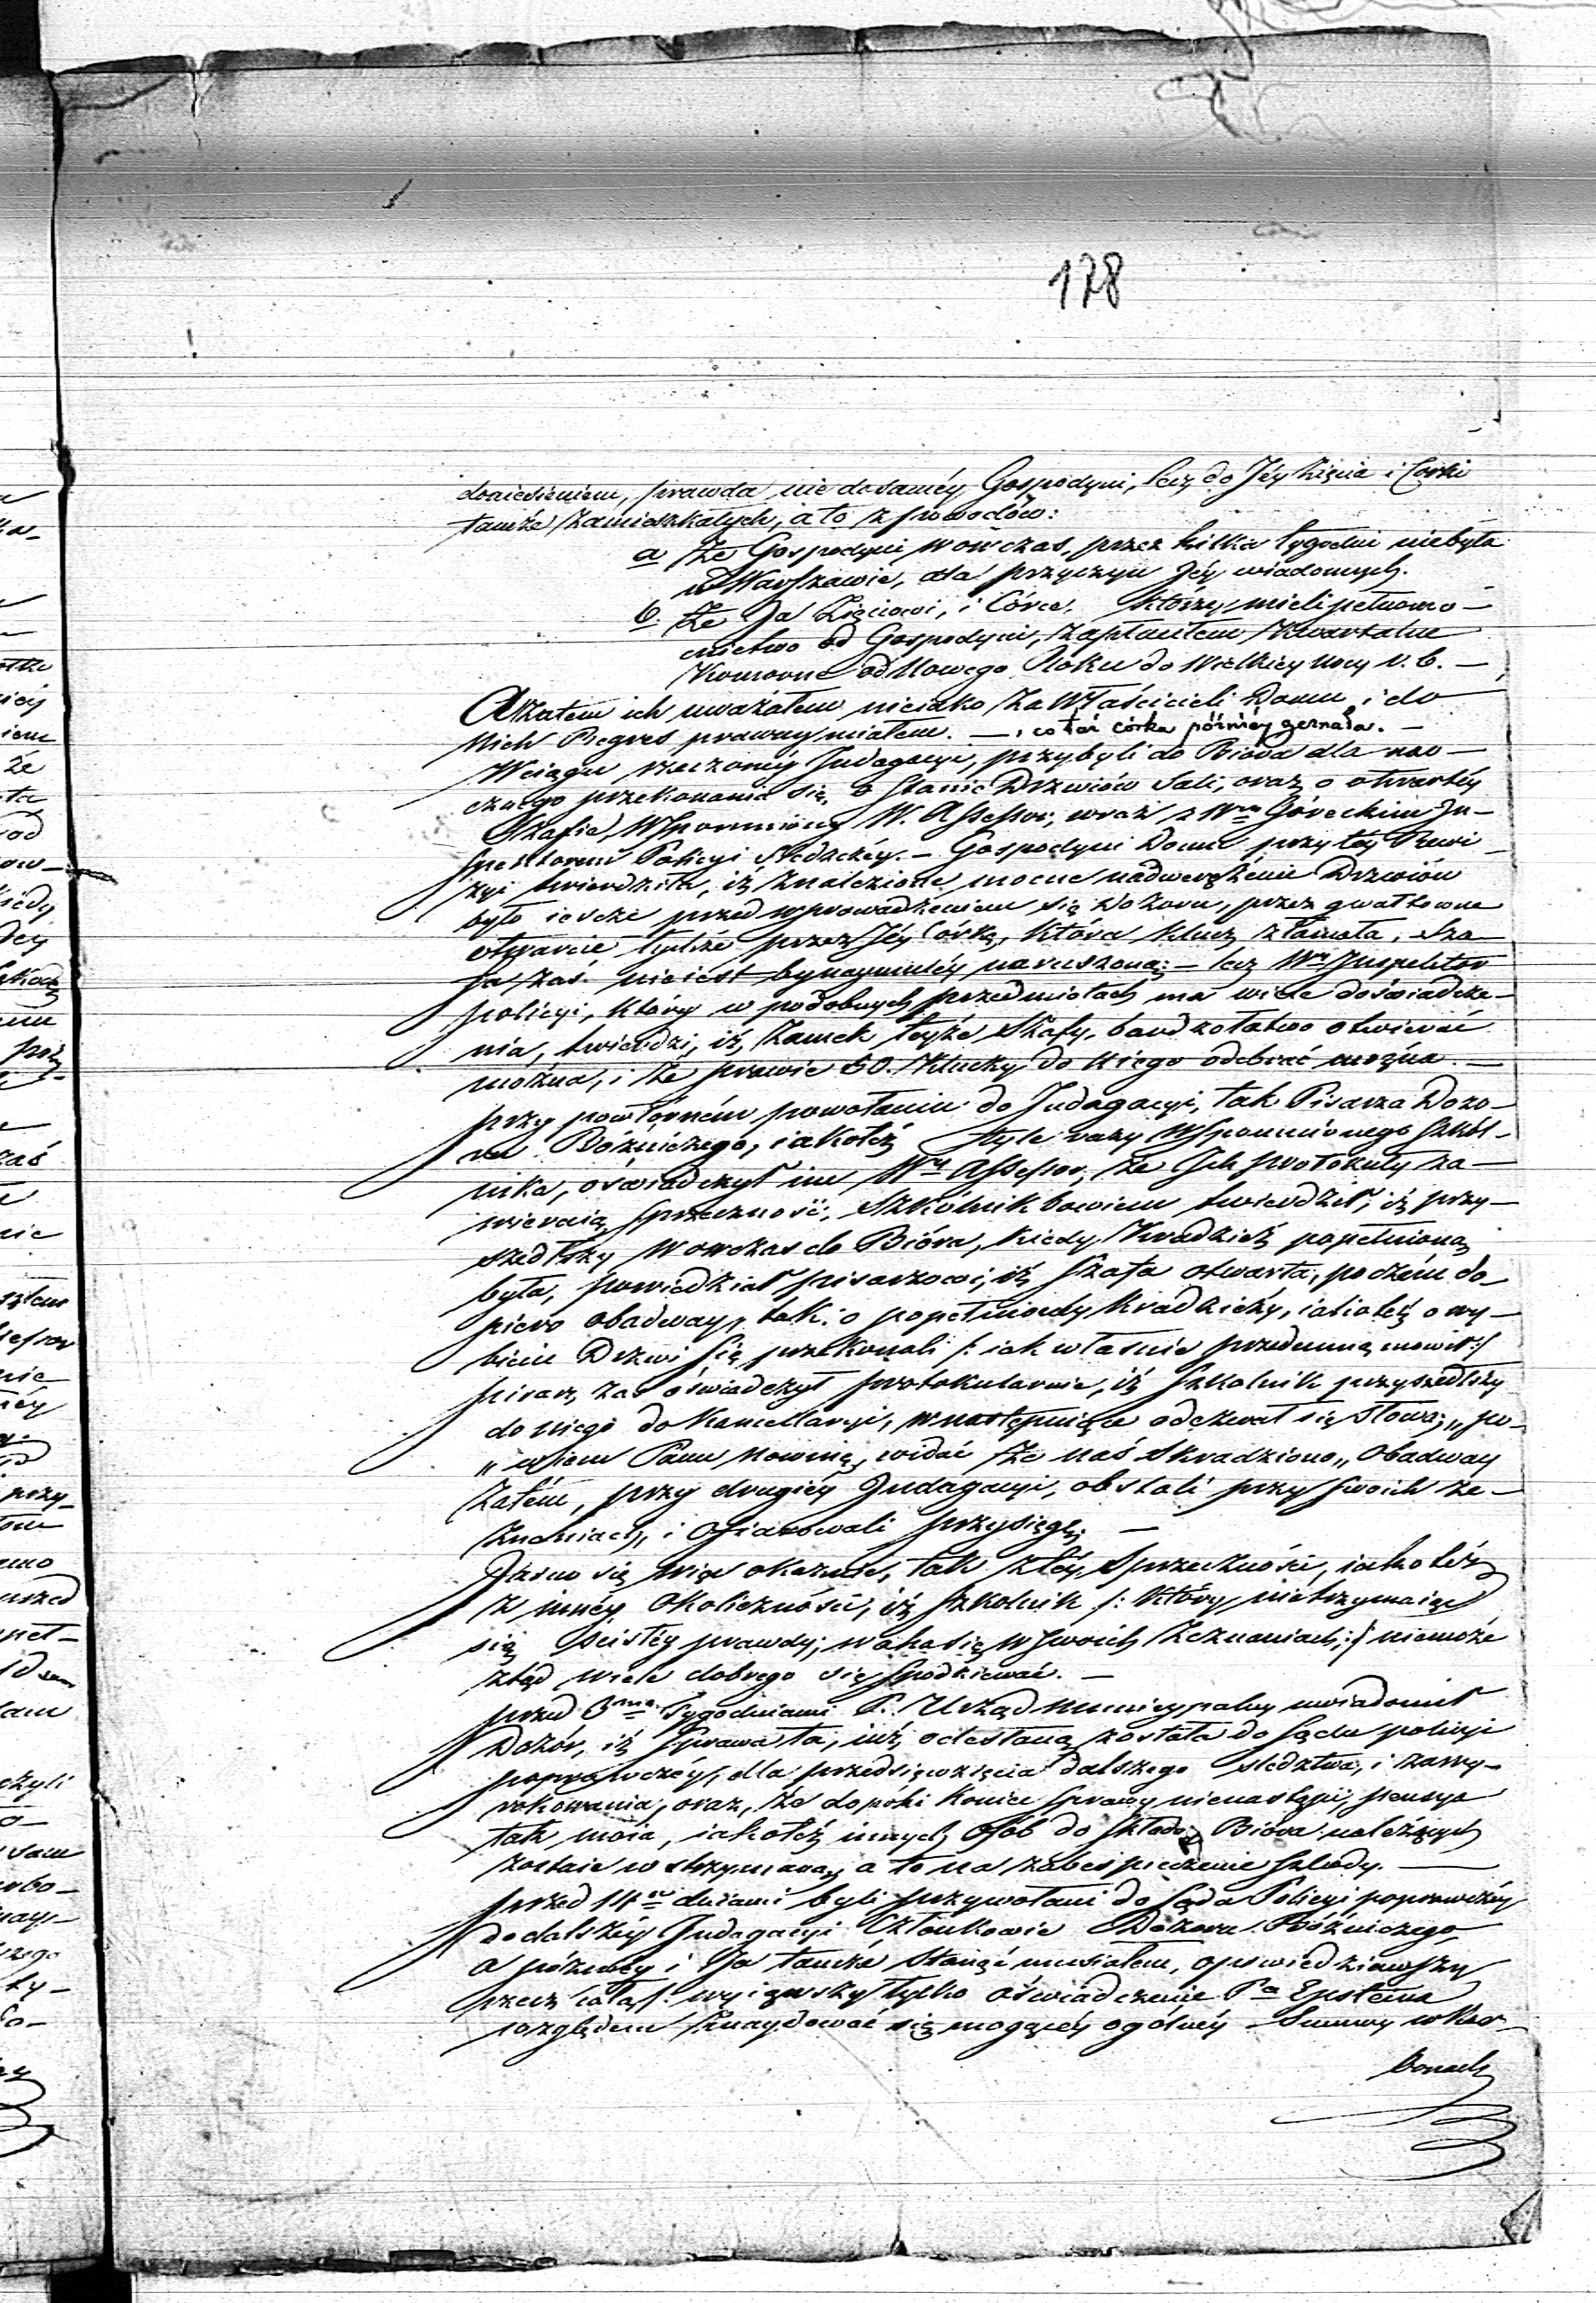 128
doniesieniem, prawda nie do saméy Gospodyni, lecz do Jéy Zięcia i Corki
tamże zamieszkałych, a to z powodów:
a Że Gospodyni wówczas, przez kilka tygodni niebyła
w Warszawie, dla przyczyn Jéy wiadomych.
b. Że Ja Zięciowi, i Córce, którzy mieli pełnomo-
cnictwo od Gospodyni, zapłaciłem kwartalne
Komorne od Nowego Roku do Wielkiey nocy r. b. —
A zatem ich uważałem nieiako za Właścicieli Domu, i do
Nich Regres prawny miałem. — i co taż córka późniéy zeznała. —
W ciągu rzeczonéy Indagacyi, przybyli do Bióra dla nao-
cznego przekonania się, o Stanie Drzwiów Sali, oraz o otwartéy
Szafie, Wspomniony W. Assessor, wraz z Wm Góreckim In-
spektorem Policyi Sledczéy. — Gospodyni Domu przy téy Rewi-
zyi twierdziła, iż znalezione mocne nadwerężenie Drzwiów
było ieszcze przed wprowadzeniem się Dozoru, przez gwałtowne
otwarcie tychże przez Jéy Córkę, która klucz złamała, Sza-
fa zaś nieiest bynaymniéy naruszoną; — lecz Wny Inspektor
policyi, który w podobnych przedmiotach ma wiele doświadcze-
nia, twierdzi, iż Zamek teyże Szafy, bardzo łatwo otwierać
można, i że prawie 50. Kluczy do niego odebrać można. —
przy powtórném powołaniu do Indagacyi, tak Pisarza Dozo-
ru Bóźniczego, iakotéż tyle razy wspomnionego Szkol-
nika, oświadczył im Wny Assessor, że Ich protokuły za-
wieraią Sprzeczność, Szkólnik bowiem twierdził, iż przy-
szedłszy wowczas do Bióra, kiedy Kradzież popełnioną
była, powiedział pisarzowi, iż Szafa otwarta, poczém do-
piero obadway, tak o popełnionéy Kradzieży, iakotéż o wy-
biciu Drzwi się przekonali /: iak właśnie przedemną mowił :/
pisarz zaś oświadczył protokularnie, iż Szkolnik przyszedłszy
do niego do Kancellaryi, w następuiące odezwał się słowa; „po-
„wiem Panu Nowinę, widać że naś skradziono„ Obadway
Zatém, przy drugiéy Indagacyi, obstali przy swoich ze-
znaniach, i ofiarowali przysięgę; —
Jasno się więc okazuie, tak z téy Sprzeczności, iako też
z innéy Okoliczności, iż Szkolnik /: który nietrzymaiąc
się scistéy prawdy, waha się w swoich Zeznaniach; :/ niemoże
ztąd wiele dobrego się spodziewać. —
przed 6ma Tygodniami P. Urząd Municypalny uwiadomił
Dozór, iż Sprawa ta, iuż odesłaną została do Sądu policyi
poprawczéy, dla przedsięwzięcia dalszego sledztwa, i zawy-
rokowania, oraz, że dopóki koniec Sprawy nienastąpi, pensya
tak moia, iakotéż innych Osób do Składu Bióra należących
zostaie wstrzymaną a to na zabezpieczenie szkody. —
przed 14tu dniami byli przywołani do Sądu Policyi poprawczéy
do dalszéy Indagacyi Członkowie Dozoru Bóźniczego,
a późniéy i Ja tamże stanąć musiałem, opowiedziawszy
rzecz całą /: wyiąwszy tylko oświadczenie Pa Epsteina
względem znaydować się mogącéy ogólnéy Summy w Kas-